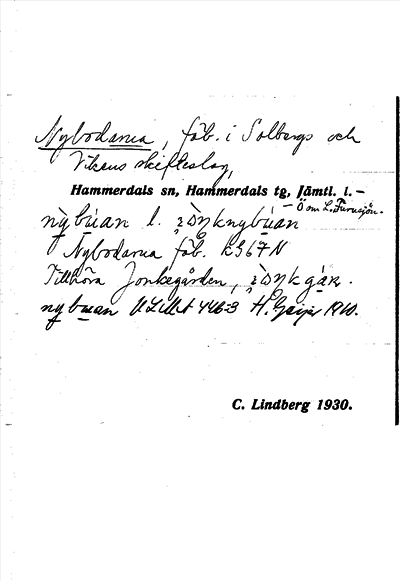 Nybodarna, fäb. i Solbergs och
Vikens skifteslag,
Hammerdals sn, Hammerdals tg, Jämtl. l. –
– Ö om L. Furusjön.
nỳbúan l.
Nybodarna fäb. KG67N
Tillhöra Jonkegården,
nybuan ULMA 446:3 H. Geijer 1910.
C. Lindberg 1930.